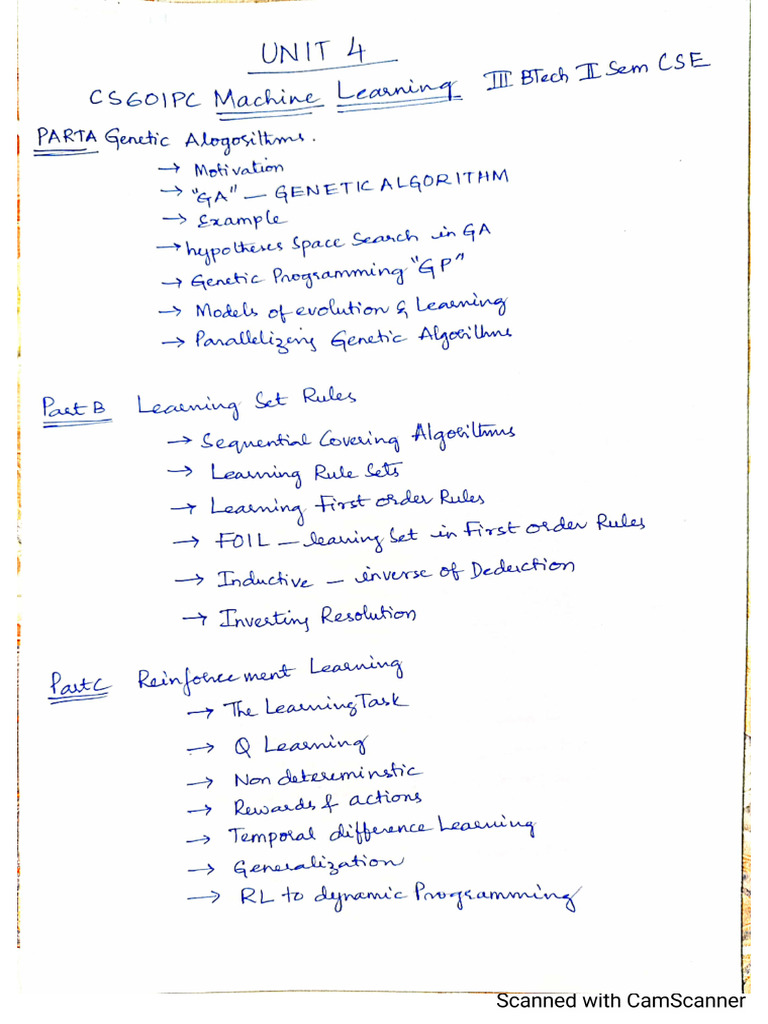 UNIT 4
CS601PC Machine Learning III BTech II Sem CSE
PARTA Genetic Alogosithms.
→ Motivation
→ "GA" — GENETIC ALGORITHM
→ Example
→ hypotheses Space Search in GA
→ Genetic Programming "GP"
→ Models of evolution & Learning
→ Parallelizing Genetic Algorithms
Part B Learning Set Rules
→ Sequential Covering Algorithms
→ Learning Rule Sets
→ Learning First order Rules
→ FOIL — learning Set in First order Rules
→ Inductive — inverse of Deduction
→ Inverting Resolution
Part C Reinforcement Learning
→ The Learning Task
→ Q Learning
→ Non detereminstic
→ Rewards & actions
→ Temporal difference Learning
→ Generalization
→ RL to dynamic Programming
Scanned with CamScanner